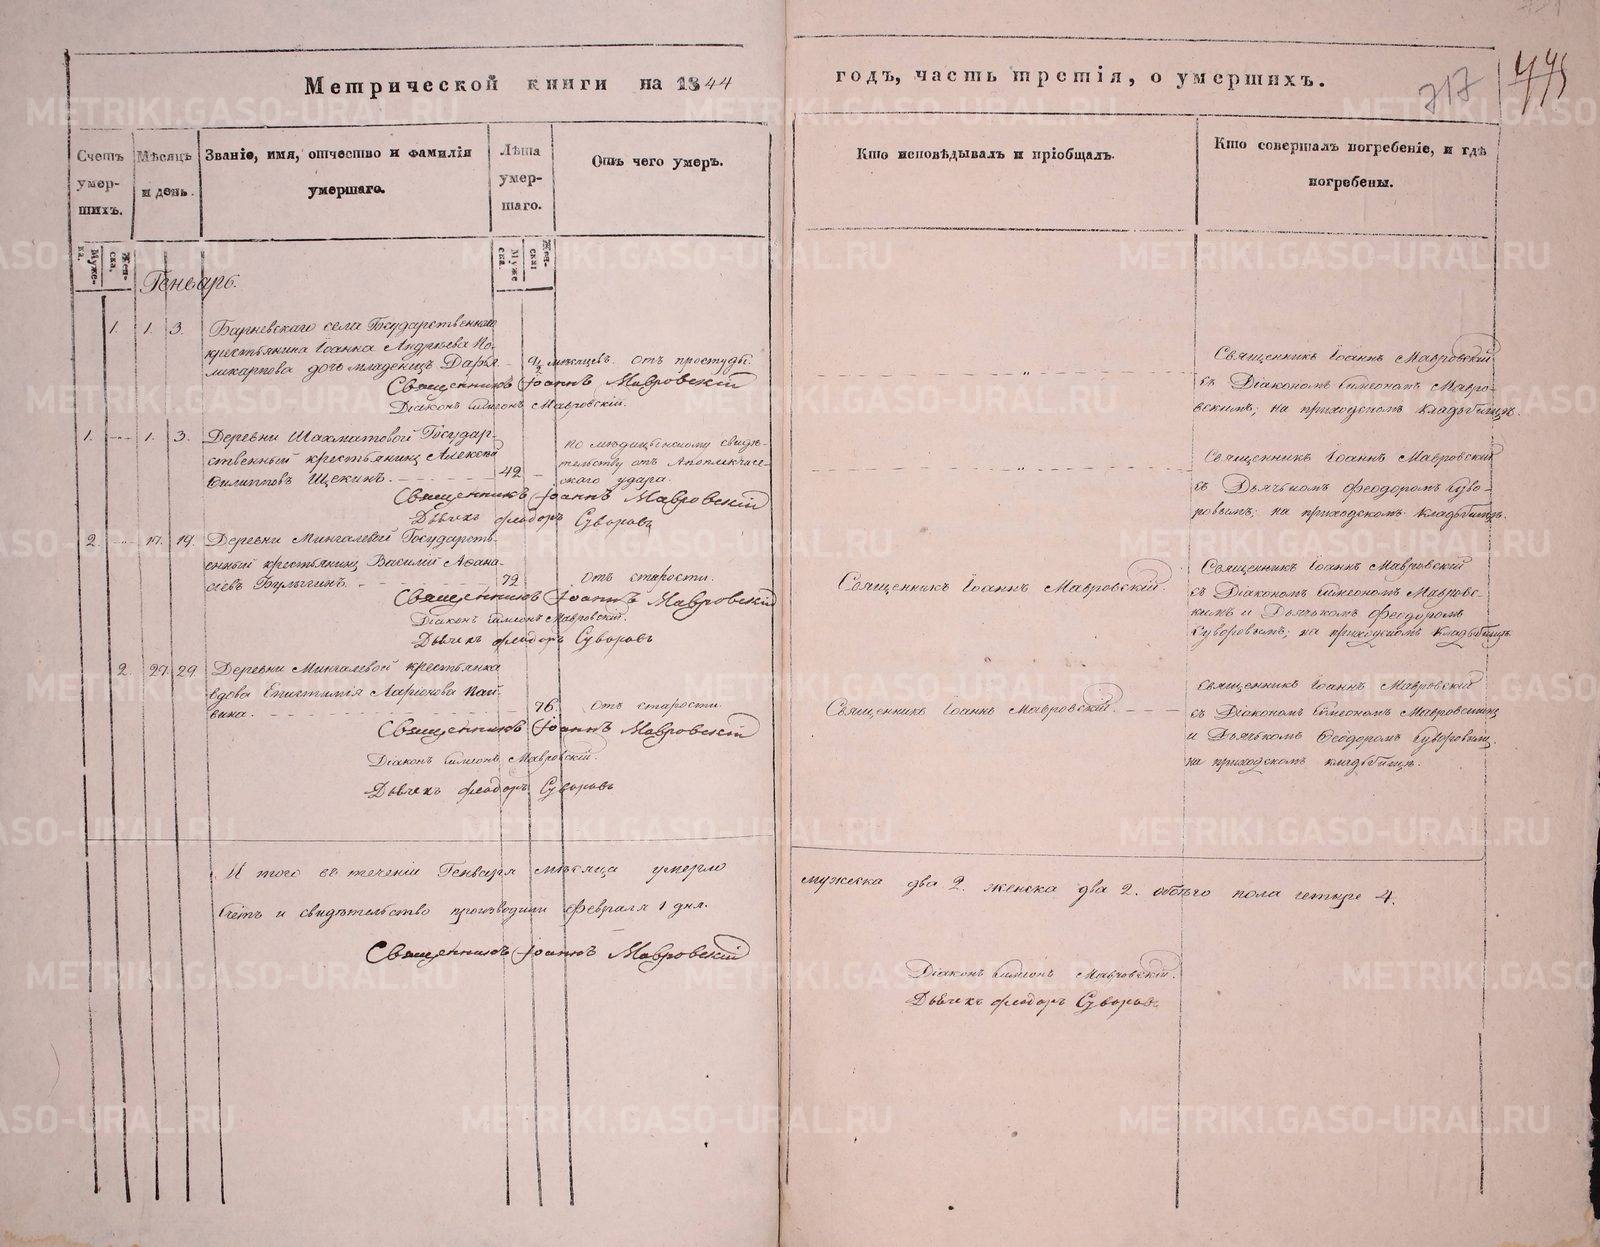 Метрической книги на 1844
годъ, часть третія, о умершихъ.
717
775
Счетъ умер-шихъ.
Муже-ска.
Жен-ска.
Мѣсяцъ и день.
Званіе, имя, отчество и фамилія умершаго.
Лѣта умер-шаго.
Муже ска.
Жен-ска
Отъ чего умеръ.
Кто исповѣдывалъ и пріобщалъ.
Кто совершалъ погребеніе, и гдѣ погребены.
Генварь.
1. 1. 3. Барневскаго села Государственнаго
крестьянина Іоанна Андрѣева По-
ликарпова дочь младенецъ Дарья
мѣсяцевъ. отъ простуды.
Священникъ Іоаннъ Мавровскій
Діаконъ Симеонъ Мавровскій.
Священникъ Іоаннъ Мавровскій
съ Діакономъ Симеономъ Мавро-
вскимъ; на приходскомъ кладбищѣ.
1. 1. 3. Деревни Шахматовой Государ-
ственный крестьянинъ Алексѣй
Филипповъ Щекинъ.
42
по медицынскому свидѣ-
тельству отъ Апоплекчисе-
скаго удара.
Священникъ Іоаннъ Мавровскій
Дьячекъ Феодоръ Суворовъ
Священникъ Іоаннъ Мавровскій
съ Дьячкомъ Феодоромъ Суво-
ровымъ; на приходскомъ кладбищѣ.
2. 17. 19. Деревни Мингалевой Государств-
енный крестьянинъ Василій Афана-
сіевъ Булыгинъ.
72
отъ старости.
Священникъ Іоаннъ Мавровскій
Діаконъ Симеонъ Мавровскій.
Дьячекъ Феодоръ Суворовъ
Священникъ Іоаннъ Мавровскій.
Священникъ Іоаннъ Мавровскій
съ Діакономъ Симеономъ Мавровс-
кимъ и Дьячкомъ Феодоромъ
Суворовымъ; на приходскомъ кладбищѣ
2. 27. 29. Деревни Мингалевой крестьянка
вдова Епистимія Ларіонова Пай
вина.
76.
отъ старости.
Священникъ Іоаннъ Мавровскій
Діаконъ Симеонъ Мавровскій.
Дьячекъ Феодоръ Суворовъ
Священникъ Іоаннъ Мавровскій.
Священникъ Іоаннъ Мавровскій
съ Діакономъ Симеономъ Мавровскимъ
и Дьячкомъ Феодоромъ Суворовымъ.
на приходскомъ кладбищѣ.
И того въ теченіи Генваря мѣсяца умерло
мужеска два 2. женска два 2. обоего пола четыре 4.
Счетъ и свидѣтельство производили Февраля 1 дня.
Священникъ Іоаннъ Мавровскій
Діаконъ Симеонъ Мавровскій.
Дьячекъ Феодоръ Суворовъ
METRIKI.GASO-URAL.RU